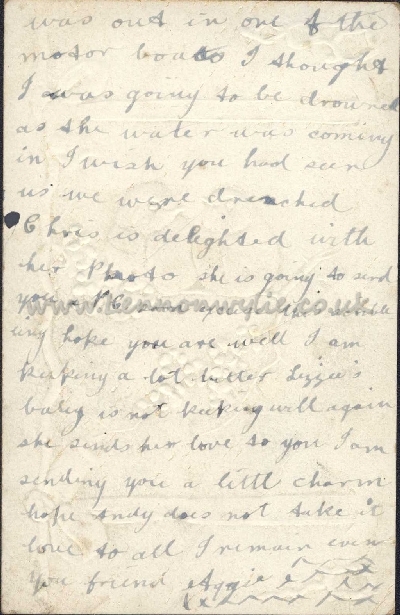 was out in one of the
motor boats I thought
I was going to be drowned
as the water was coming
in I wish you had seen
us we were drenched
Chris is delighted with
her Photo she is going to send
you
www.lennonwylie.co.uk
hope you are well I am
keeping a lot better Lizzie's
baby is not keeping well again
she sends her love to you I am
sending you a little charm
hope Andy does not take it
love to all I remain ever
you friend Aggie